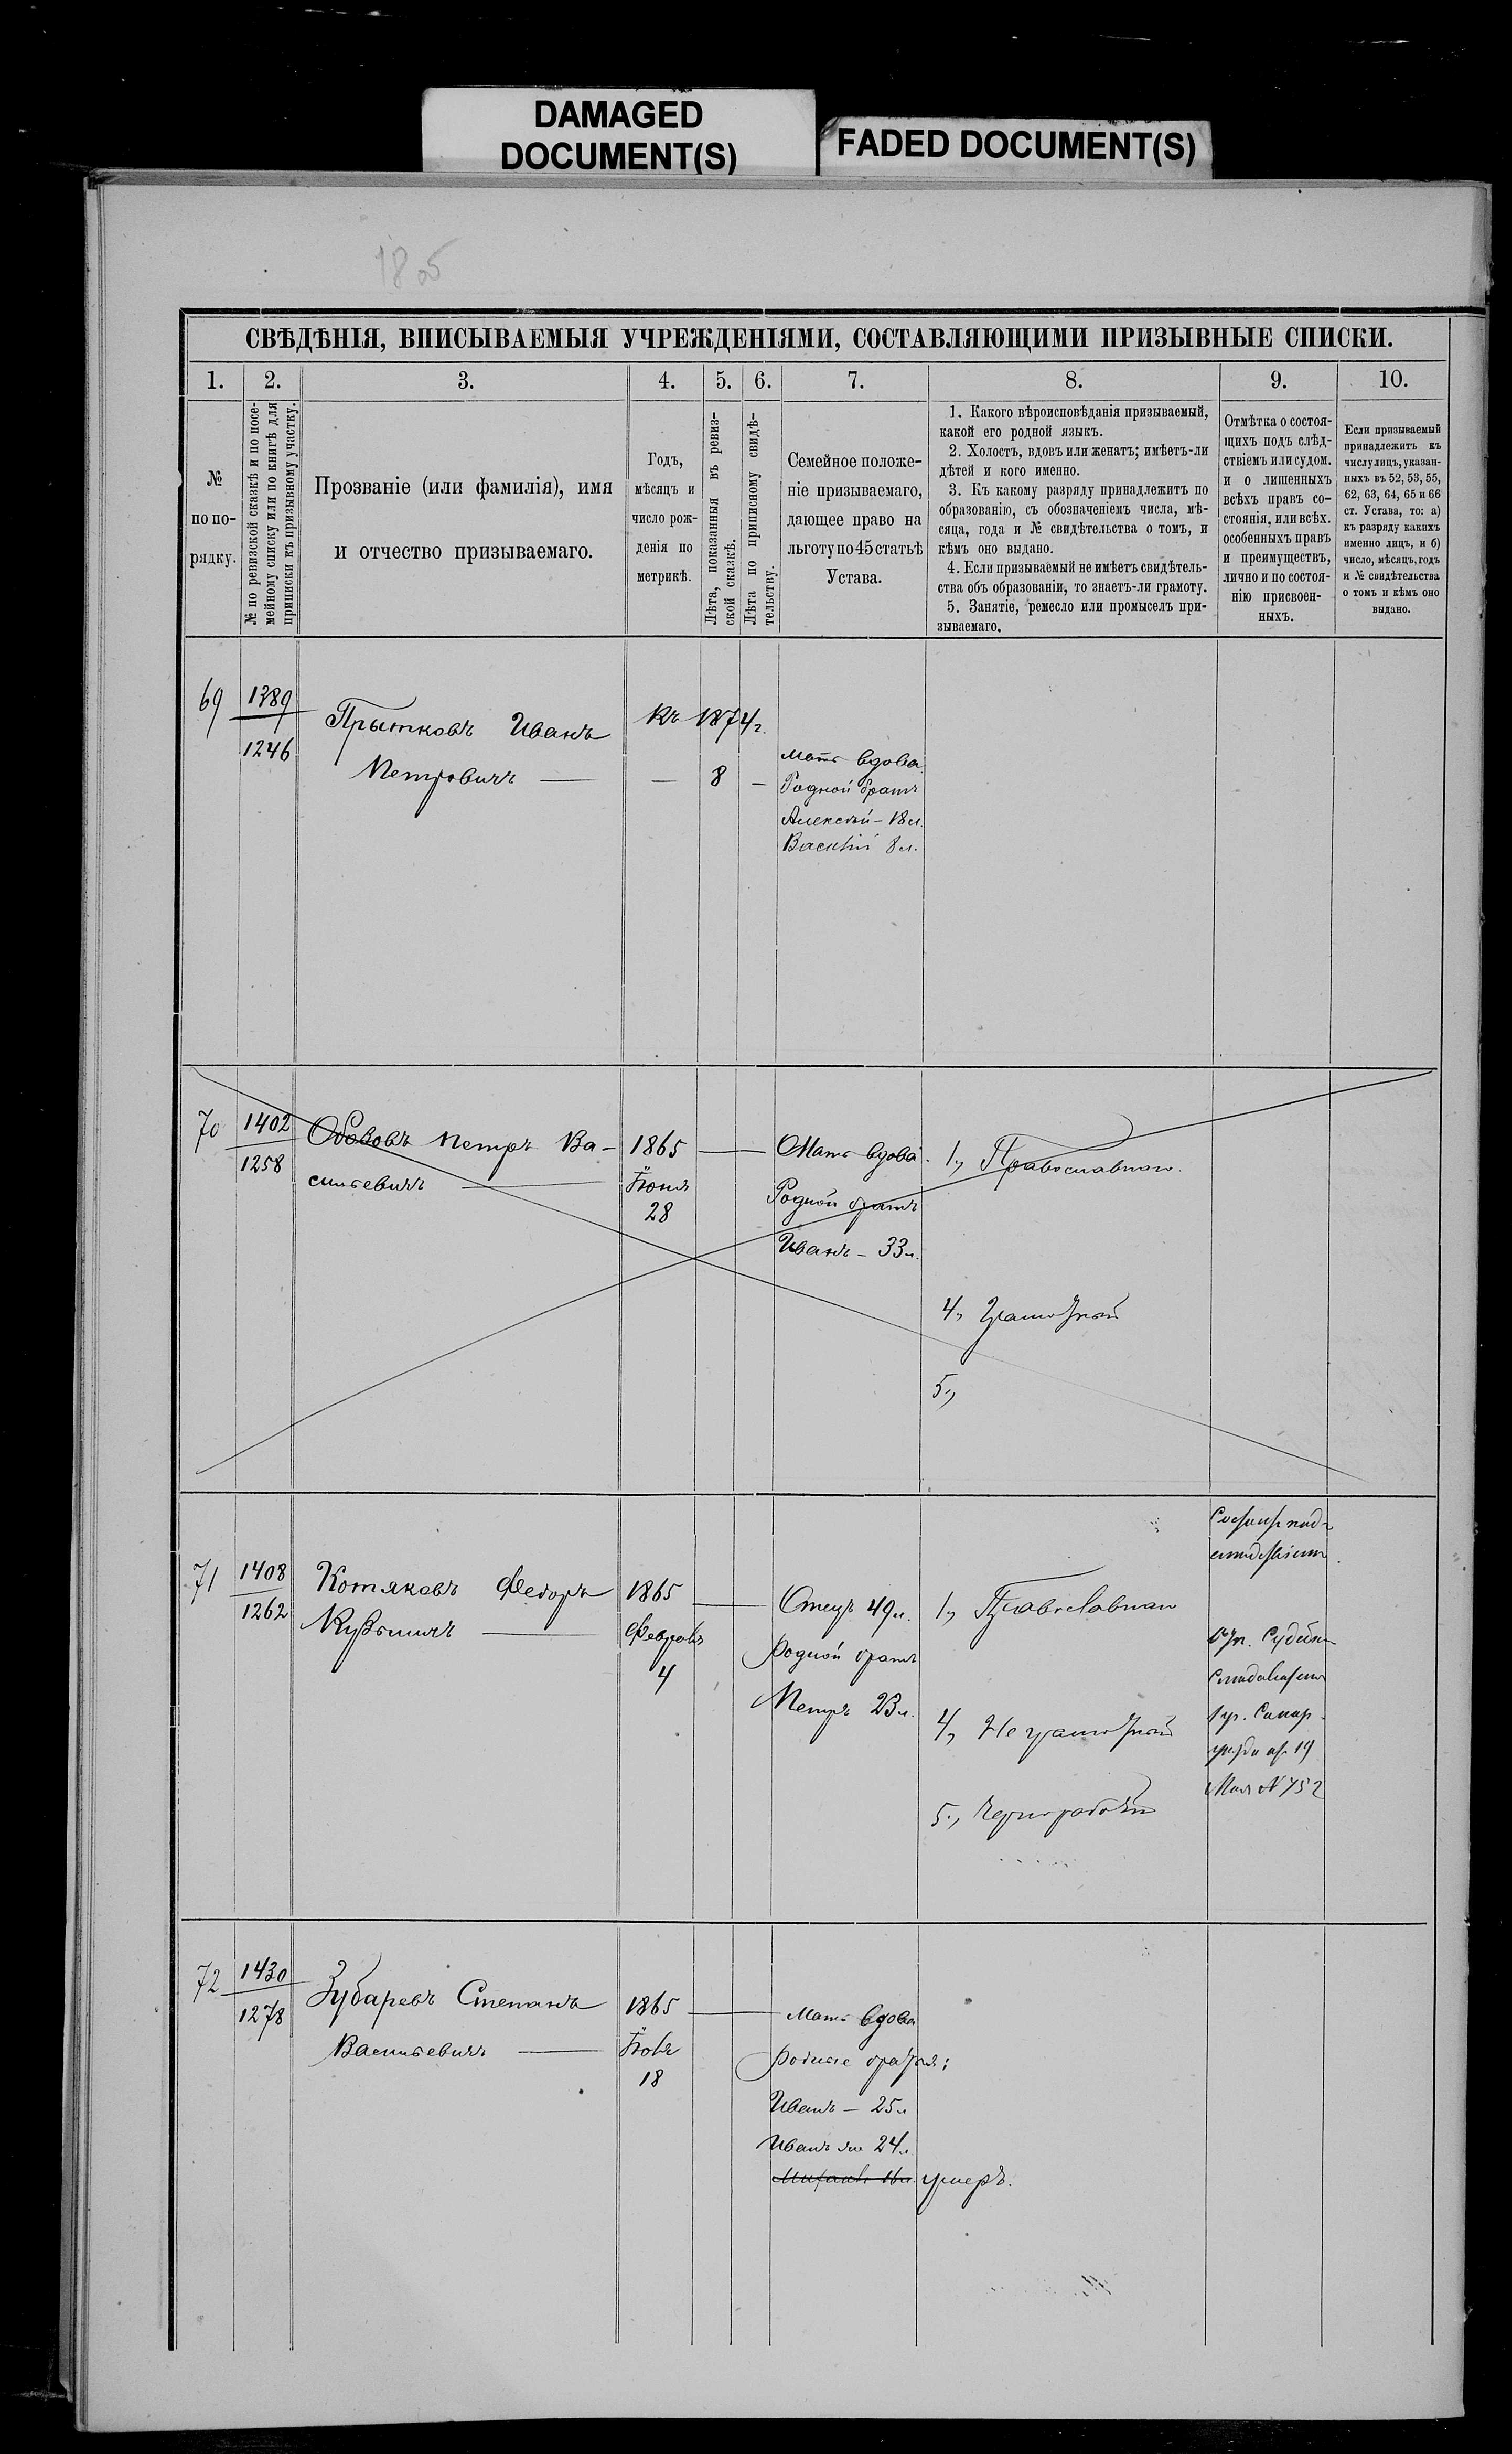 DAMAGED
DOCUMENT(S)
FADED DOCUMENT(S)
СВѢДѢНІЯ, ВПИСЫВАЕМЫЯ УЧРЕЖДЕНІЯМИ, СОСТАВЛЯЮЩИМИ ПРИЗЫВНЫЕ СПИСКИ.
1. 2. 3. 4. 5. 6. 7. 8. 9. 10.
№
по по-
рядку.
№ по ревизской сказкѣ и по посе-
мейному списку или по книгѣ для
приписки къ призывному участку.
Прозваніе (или фамилія), имя
и отчество призываемаго.
Годъ,
мѣсяцъ и
число рож-
денія по
метрикѣ.
Лѣта, показанныя въ ревиз-
ской сказкѣ.
Лѣта по приписному свидѣ-
тельству.
Семейное положе-
ніе призываемаго,
дающее право на
льготу по 45 статьѣ
Устава.
1. Какого вѣроисповѣданія призываемый,
какой его родной языкъ.
2. Холостъ, вдовъ или женатъ; имѣетъ-ли
дѣтей и кого именно.
3. Къ какому разряду принадлежитъ по
образованію, съ обозначеніемъ числа, мѣ-
сяца, года и № свидѣтельства о томъ, и
кѣмъ оно выдано.
4. Если призываемый не имѣетъ свидѣтель-
ства объ образованіи, то знаетъ-ли грамоту.
5. Занятіе, ремесло или промыселъ при-
зываемаго.
Отмѣтка о состоя-
щихъ подъ слѣд-
ствіемъ или судом.
и о лишенныхъ
всѣхъ правъ со-
стоянія, или всѣх.
особенныхъ правъ
и преимуществъ,
лично и по состоя-
нію присвоен-
ныхъ.
Если призываемый
принадлежитъ къ
числу лицъ, указан-
ныхъ въ 52, 53, 55,
62, 63, 64, 65 и 66
ст. Устава, то: а)
къ разряду какихъ
именно лицъ, и б)
число, мѣсяцъ, годъ
и № свидѣтельства
о томъ и кѣмъ оно
выдано.
69
1389
1246
Прытковъ Иванъ
Петровичъ —
Къ 1874 г.
— 8 —
Мать вдова.
Родной братъ
Алексѣй – 18 л.
Василій 8 л.
70
1402
1258
Петръ Ва-
сильевичъ
1865
Іюня
28
Мать вдова.
Родной братъ
Иванъ – 33 л.
1., Православнаго.
4, Грамотный
5.,
71
1408
1262
Котяковъ Федоръ
Кузьмичъ
1865
Февраля
4
Отецъ 49 л.
Родной братъ
Петръ 23 л.
1., Православнаго
4, Неграмотный
5.,
Мая № 752
72
1430
1278
Зубаревъ Степанъ
Васильевичъ
1865
18
Мать вдова
родные братья:
Иванъ – 25 л
Иванъ же 24 л.
умеръ.